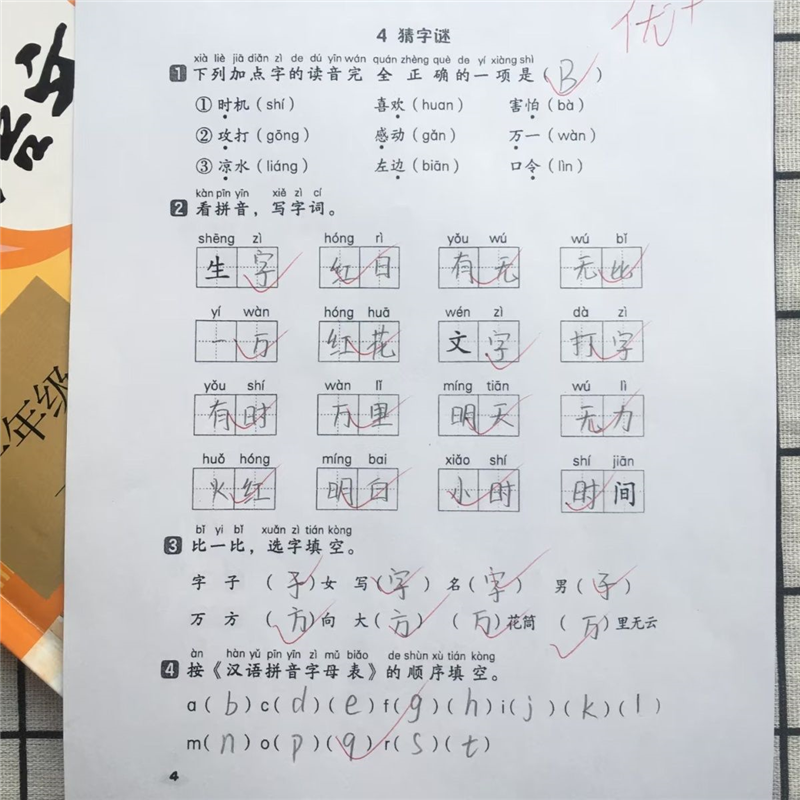 优+
4 猜字谜
xià liè jiā diǎn zì de dú yīn wán quán zhèng què de yí xiàng shì
1 下列加点字的读音完全正确的一项是(B)
①时机(shí) 喜欢(huan) 害怕(bà)
②攻打(gōng) 感动(gǎn) 万一(wàn)
③凉水(liáng) 左边(biān) 口令(lìn)
kàn pīn yīn xiě zì cí
2 看拼音，写字词。
shēng zì hóng rì yǒu wú wú bǐ
生字 红日 有无 无比
yí wàn hóng huā wén zì dǎ zì
一万 红花 文字 打字
yǒu shí wàn lǐ míng tiān wú lì
有时 万里 明天 无力
huǒ hóng míng bai xiǎo shí shí jiān
火红 明白 小时 时间
bǐ yi bǐ xuǎn zì tián kòng
3 比一比，选字填空。
字 子 (子)女 写(字) 名(字) 男(子)
万 方 (方)向 大(方) (万)花筒 (万)里无云
àn hàn yǔ pīn yīn zì mǔ biǎo de shùn xù tián kòng
4 按《汉语拼音字母表》的顺序填空。
a(b)c(d)(e)f(g)(h)i(j)(k)(l)
m(n)o(p)(q)r(s)(t)
4
年级